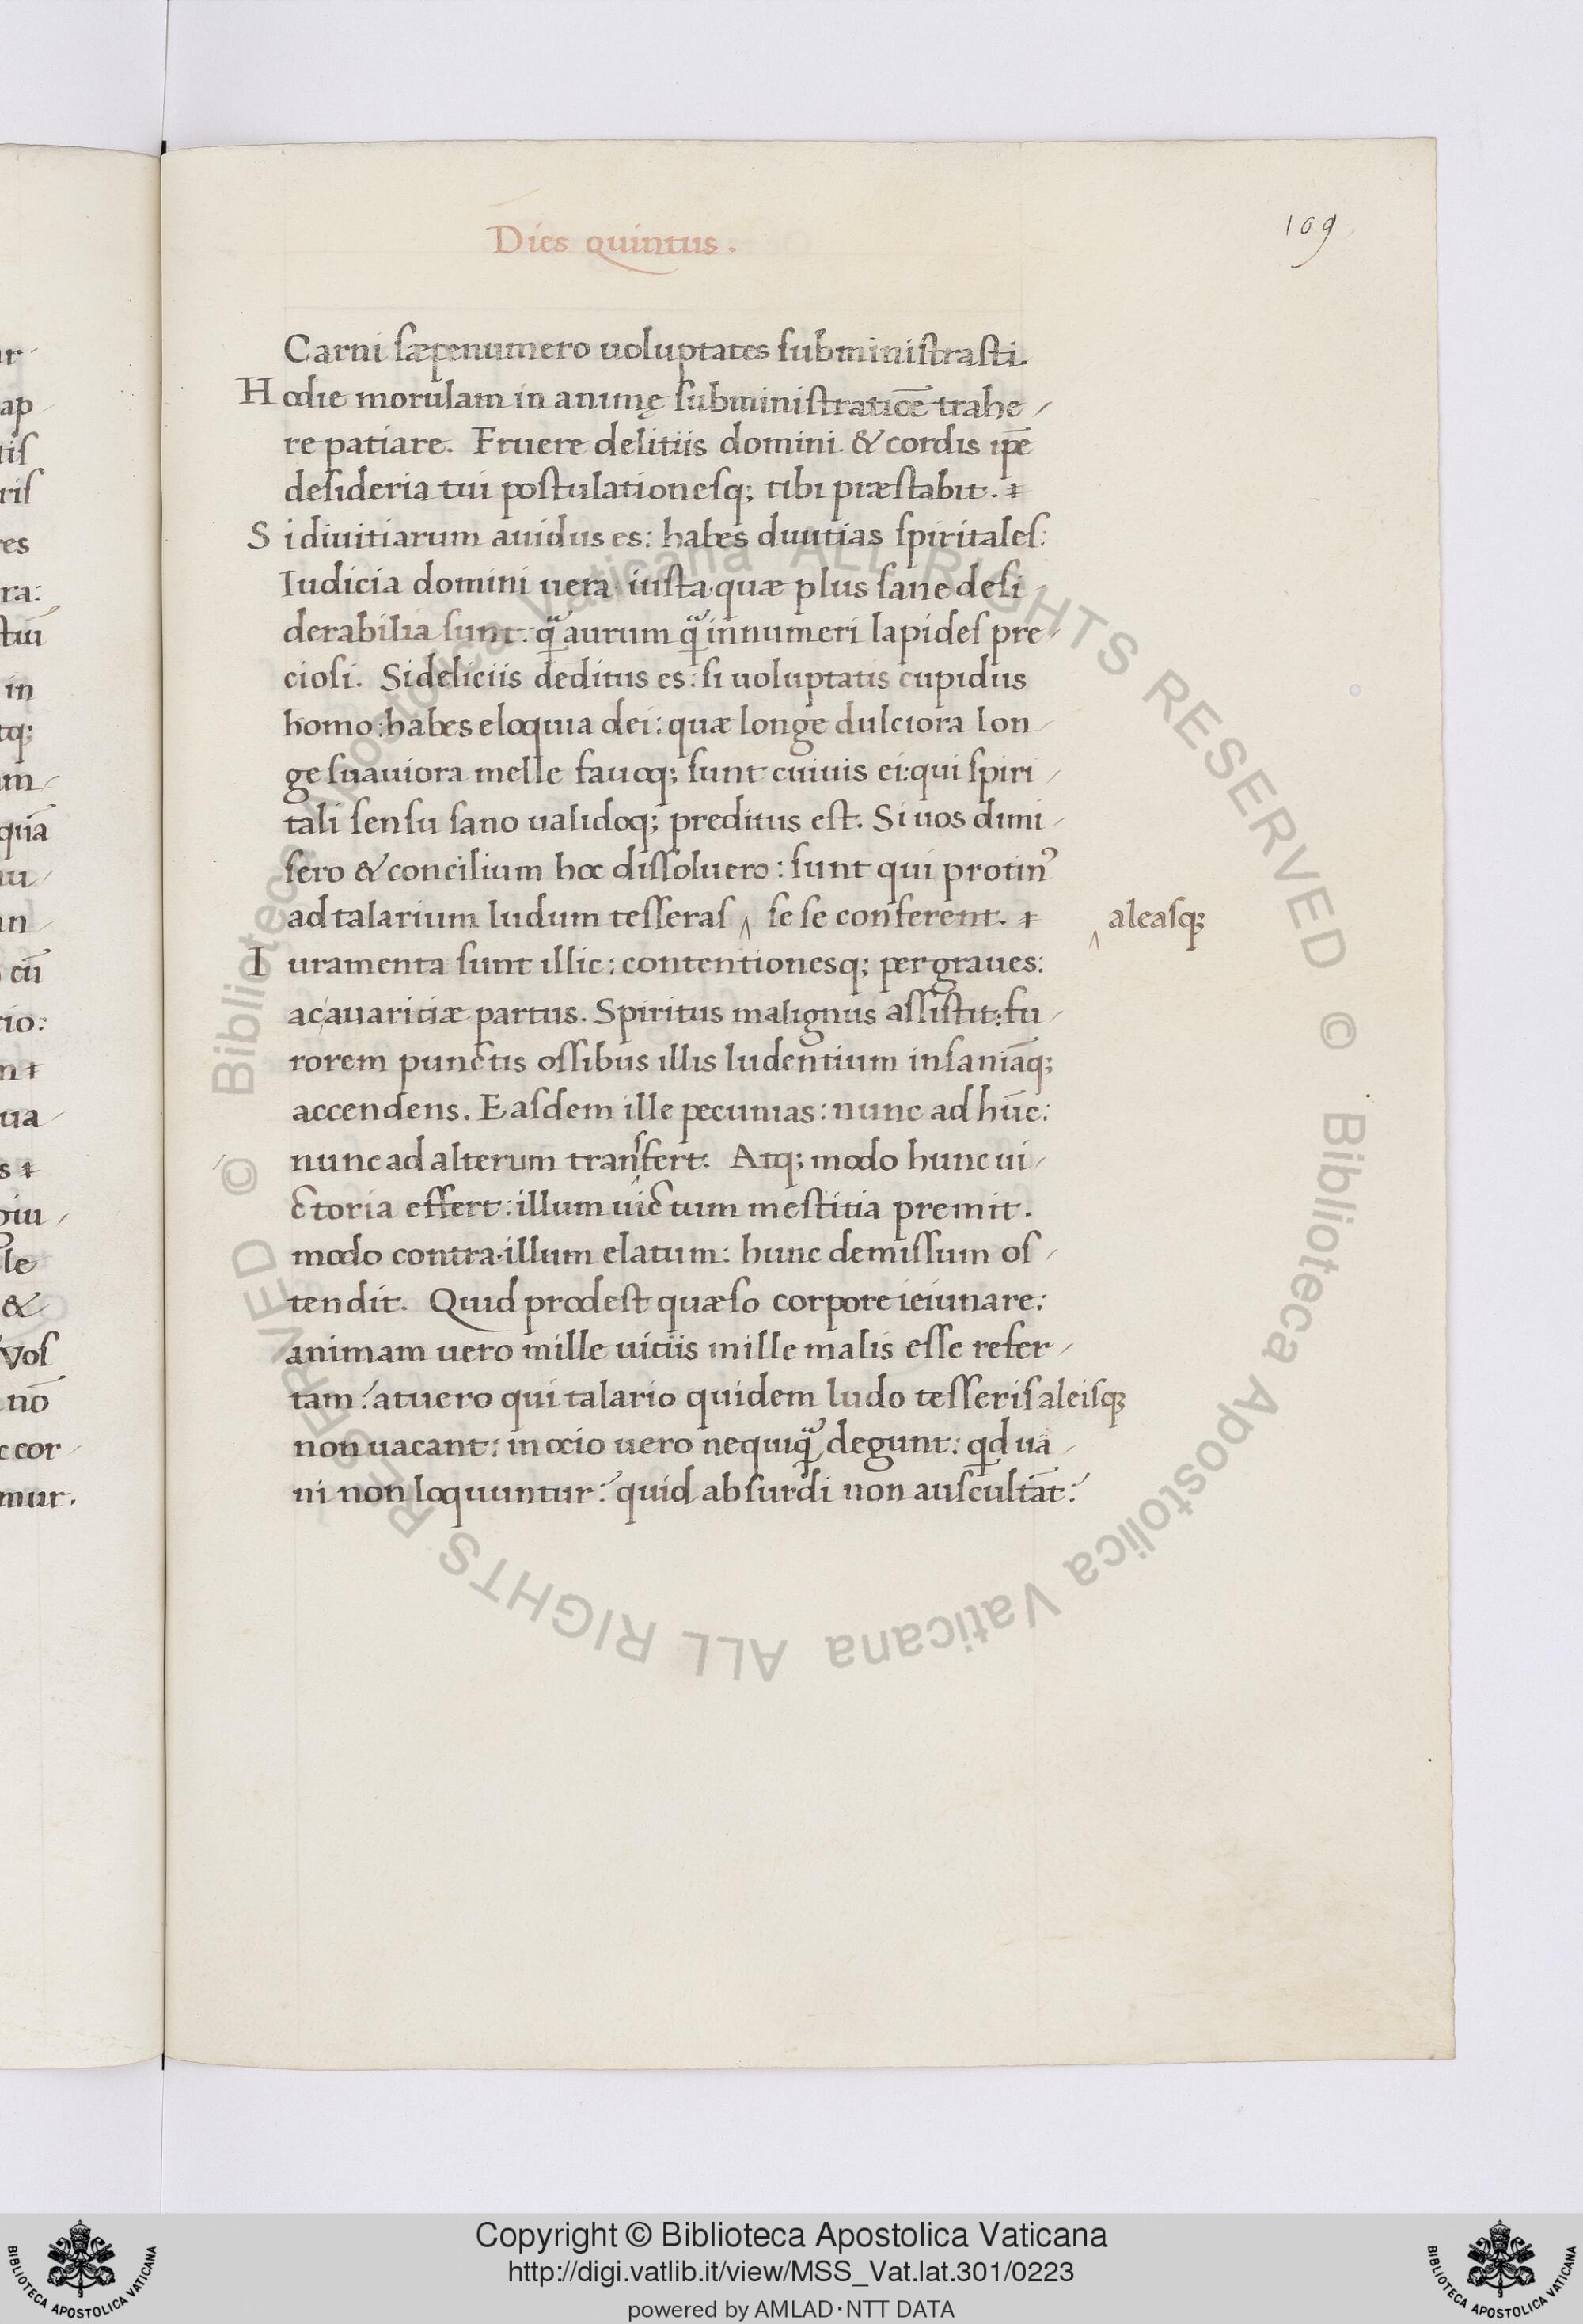 Dies quintus.
109
Carni sæpenumero uoluptates subministrasti.
Hodie morulam in animę subministratiōe trahe
re patiare. Fruere delitiis domini. & cordis ip̄e
desideria tui postulationesq; tibi præstabit.
Si diuitiarum auidus es: habes diuitias spiritales:
Iudicia domini uera· iusta· quæ plus sane desi
derabilia sunt: q̈̄ aurum q̈̄ innumeri lapides pre
ciosi. Si deliciis deditus es: si uoluptatis cupidus
homo: habes eloquia dei: quæ longe dulciora lon
ge suauiora melle fauoq; sunt cuiuis ei: qui spiri
tali sensu sano ualidoq; preditus est. Si uos dimi
sero & concilium hoc dissoluero: sunt qui protinꝰ
ad talarium ludum tesseras ‸ se se conferent. ‸ aleasq;
Iuramenta sunt illic: contentionesq; per graues:
ac auaritiæ partus. Spiritus malignus assistit: fu
rorem punctis ossibus illis ludentium insaniāq;
accendens. Easdem ille pecunias: nunc ad hūc:
nunc ad alterum transfert: Atq; modo hunc ui
ctoria effert: illum uictum mestitia premit.
modo contra· illum elatum: hunc demissum os
tendit. Quid prodest quæso corpore ieiunare:
animam uero mille uitiis mille malis esse refer
tam? at uero qui talario quidem ludo tesseris aleisq;
non uacant: in ocio uero nequiq̈̄ degunt: qd ua
ni non loquuntur? quid absurdi non auscultāt?
ur
ap
tis
ris
es
ra:
stiū
in
tq;
am
quā
nu
an
cū
tio:
n
ua
s
giu
le
&
Vos
nō
c cor
mur.
© Biblioteca Apostolica Vaticana ALL RIGHTS RESERVED © Biblioteca Apostolica Vaticana ALL RIGHTS RESERVED
Copyright © Biblioteca Apostolica Vaticana
http://digi.vatlib.it/view/MSS_Vat.lat.301/0223
powered by AMLAD·NTT DATA
BIBLIOTECA APOSTOLICA VATICANA
BIBLIOTECA APOSTOLICA VATICANA